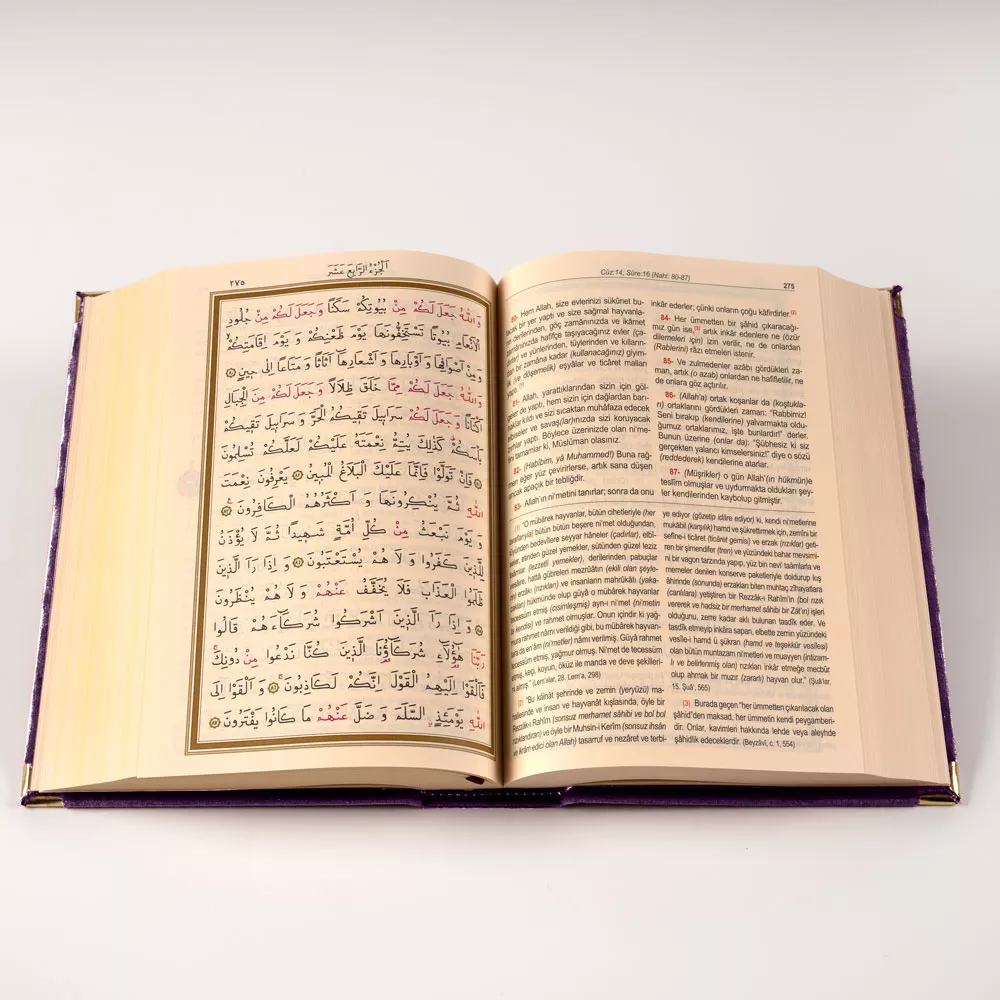 الجزء الرابع عشر
٢٧٥
وَاللّٰهُ جَعَلَ لَكُمْ مِنْ بُيُوتِكُمْ سَكَنًا وَجَعَلَ لَكُمْ مِنْ جُلُودِ
الْاَنْعَامِ بُيُوتًا تَسْتَخِفُّونَهَا يَوْمَ ظَعْنِكُمْ وَ يَوْمَ اِقَامَتِكُمْ
وَمِنْ اَصْوَافِهَا وَ اَوْبَارِهَا وَ اَشْعَارِهَا اَثَاثًا وَ مَتَاعًا اِلٰى حِينٍ ﴿٨٠﴾
وَاللّٰهُ جَعَلَ لَكُمْ مِمَّا خَلَقَ ظِلَالًا وَجَعَلَ لَكُمْ مِنَ الْجِبَالِ
اَكْنَانًا وَجَعَلَ لَكُمْ سَرَابِيلَ تَقِيكُمُ الْحَرَّ وَ سَرَابِيلَ تَقِيكُمْ
بَاْسَكُمْ كَذٰلِكَ يُتِمُّ نِعْمَتَهُ عَلَيْكُمْ لَعَلَّكُمْ تُسْلِمُونَ
﴿٨١﴾ فَاِنْ تَوَلَّوْا فَاِنَّمَا عَلَيْكَ الْبَلَاغُ الْمُبِينُ ﴿٨٢﴾ يَعْرِفُونَ نِعْمَتَ
اللّٰهِ ثُمَّ يُنْكِرُونَهَا وَ اَكْثَرُهُمُ الْكَافِرُونَ ﴿٨٣﴾
وَ يَوْمَ نَبْعَثُ مِنْ كُلِّ اُمَّةٍ شَهِيدًا ثُمَّ لَا يُؤْذَنُ
لِلَّذِينَ كَفَرُوا وَ لَا هُمْ يُسْتَعْتَبُونَ ﴿٨٤﴾ وَ اِذَا رَاَ الَّذِينَ
ظَلَمُوا الْعَذَابَ فَلَا يُخَفَّفُ عَنْهُمْ وَ لَا هُمْ يُنْظَرُونَ
﴿٨٥﴾ وَ اِذَا رَاَ الَّذِينَ اَشْرَكُوا شُرَكَاءَهُمْ قَالُوا
رَبَّنَا هٰؤُلَاءِ شُرَكَاؤُنَا الَّذِينَ كُنَّا نَدْعُوا مِنْ دُونِكَ
فَاَلْقَوْا اِلَيْهِمُ الْقَوْلَ اِنَّكُمْ لَكَاذِبُونَ ﴿٨٦﴾ وَ اَلْقَوْا اِلَى
اللّٰهِ يَوْمَئِذٍ السَّلَمَ وَ ضَلَّ عَنْهُمْ مَا كَانُوا يَفْتَرُونَ ﴿٨٧﴾
Cüz:14, Sûre:16 (Nahl: 80-87)
275
80- Hem Allah, size evlerinizi sükûnet bu-
lacak bir yer yaptı ve size sağmal hayvanla-
derilerinden, göç zamanınızda ve ikâmet
zamanınızda hafifçe taşıyacağınız evler (ça-
ve yünlerinden, tüylerinden ve kılların-
bir zamana kadar (kullanacağınız) giyim-
(ve döşemelik) eşyâlar ve ticâret malları
yaptı. (1)
81- Allah, yarattıklarından sizin için göl-
geler de yaptı, hem sizin için dağlardan barı-
naklar kıldı ve sizi sıcaktan muhâfaza edecek
elbiseler ve savaş(lar)ınızda sizi koruyacak
yaptı. Böylece üzerinizde olan ni'me-
tamamlar ki, Müslüman olasınız.
82- (Habîbim, yâ Muhammed!) Buna rağ-
men eğer yüz çevirirlerse, artık sana düşen
ancak apaçık bir tebliğdir.
83- Allah'ın ni'metini tanırlar; sonra da onu
inkâr ederler; çünki onların çoğu kâfirdirler.(2)
84- Her ümmetten bir şâhid çıkaracağı-
mız gün ise,(3) artık inkâr edenlere ne (özür
dilemeleri için) izin verilir, ne de onlardan
(Rablerini) râzı etmeleri istenir.
85- Ve zulmedenler azâbı gördükleri za-
man, artık (o azab) onlardan ne hafifletilir, ne
de onlara göz açtırılır.
86- (Allah'a) ortak koşanlar da (koştukla-
rı) ortaklarını gördükleri zaman: "Rabbimiz!
Seni bırakıp (kendilerine) yalvarmakta oldu-
ğumuz ortaklarımız, işte bunlardır!" derler.
Bunun üzerine (onlar da): "Şübhesiz ki siz
gerçekten yalancı kimselersiniz!" diye o sözü
(reddederek) kendilerine atarlar.
87- (Müşrikler) o gün Allah'(ın hükmün)e
teslîm olmuşlar ve uydurmakta oldukları şey-
ler kendilerinden kaybolup gitmiştir.
(1) "O mübârek hayvanlar, bütün cihetleriyle (her
taraflarıyla) bütün bütün beşere ni'met olduğundan,
tüyünden bedevîlere seyyar hâneler (çadırlar), elbî-
seler, etinden güzel yemekler, sütünden güzel leziz
taâmlar (lezzetli yemekler), derilerinden pabuçlar
vesâire, hattâ gübreleri mezrûâtın (ekili olan şeyle-
rin) erzâkı (rızıkları) ve insanların mahrûkātı (yaka-
cakları) hükmünde olup gûyâ o mübârek hayvanlar
tecessüm etmiş (cisimleşmiş) ayn-ı ni'met (ni'metin
kendisi) ve rahmet olmuşlar. Onun içindir ki yağ-
mura rahmet nâmı verildiği gibi, bu mübârek hayvan-
lara da en'âm (ni'metler) nâmı verilmiş. Gûyâ rahmet
tecessüm etmiş, yağmur olmuş. Ni'met de tecessüm
etmiş, keçi, koyun, öküz ile manda ve deve şekilleri-
ni almış." (Lem'alar, 28. Lem'a, 298)
(2) "Bu kâinât şehrinde ve zemin (yeryüzü) ma-
hallesinde ve insan ve hayvanât kışlasında, öyle bir
Rezzâk-ı Rahîm (sonsuz merhamet sâhibi ve bol bol
rızıklandıran) ve öyle bir Muhsin-i Kerîm (sonsuz ihsân
ve ikrâm edici olan Allah) tasarruf ve nezâret ve terbi-
ye ediyor (gözetip idâre ediyor) ki, kendi ni'metlerine
mukābil (karşılık) hamd ve şükrettirmek için, zemîni bir
sefîne-i ticâret (ticâret gemisi) ve erzak (rızıklar) geti-
ren bir şimendifer (tren) ve yüzündeki bahar mevsimi-
ni bir vagon tarzında yapıp, yüz bin nevi taâmlarla ve
memeler denilen konserve paketleriyle doldurup kış
âhirinde (sonunda) erzakları biten muhtaç zîhayatlara
(canlılara) yetiştiren bir Rezzâk-ı Rahîm'in (bol rızık
vererek ve hadsiz bir merhamet sâhibi bir Zât'ın) işleri
olduğunu, zerre kadar aklı bulunan tasdîk eder. Ve
tasdîk etmeyip inkâra sapan, elbette zemin yüzündeki
vesîle-i hamd ü şükran (hamd ve teşekkür vesîlesi)
olan bütün muntazam ni'metleri ve muayyen (intizam-
lı ve belirlenmiş olan) rızıkları inkâr etmeğe mecbûr
olup ahmak bir muzır (zararlı) hayvan olur." (Şuâ'lar,
15. Şuâ', 565)
(3) Burada geçen "her ümmetten çıkarılacak olan
şâhid"den maksad, her ümmetin kendi peygamberi-
dir. Onlar, kavimleri hakkında lehde veya aleyhde
şâhidlik edeceklerdir. (Beyzâvî, c. 1, 554)